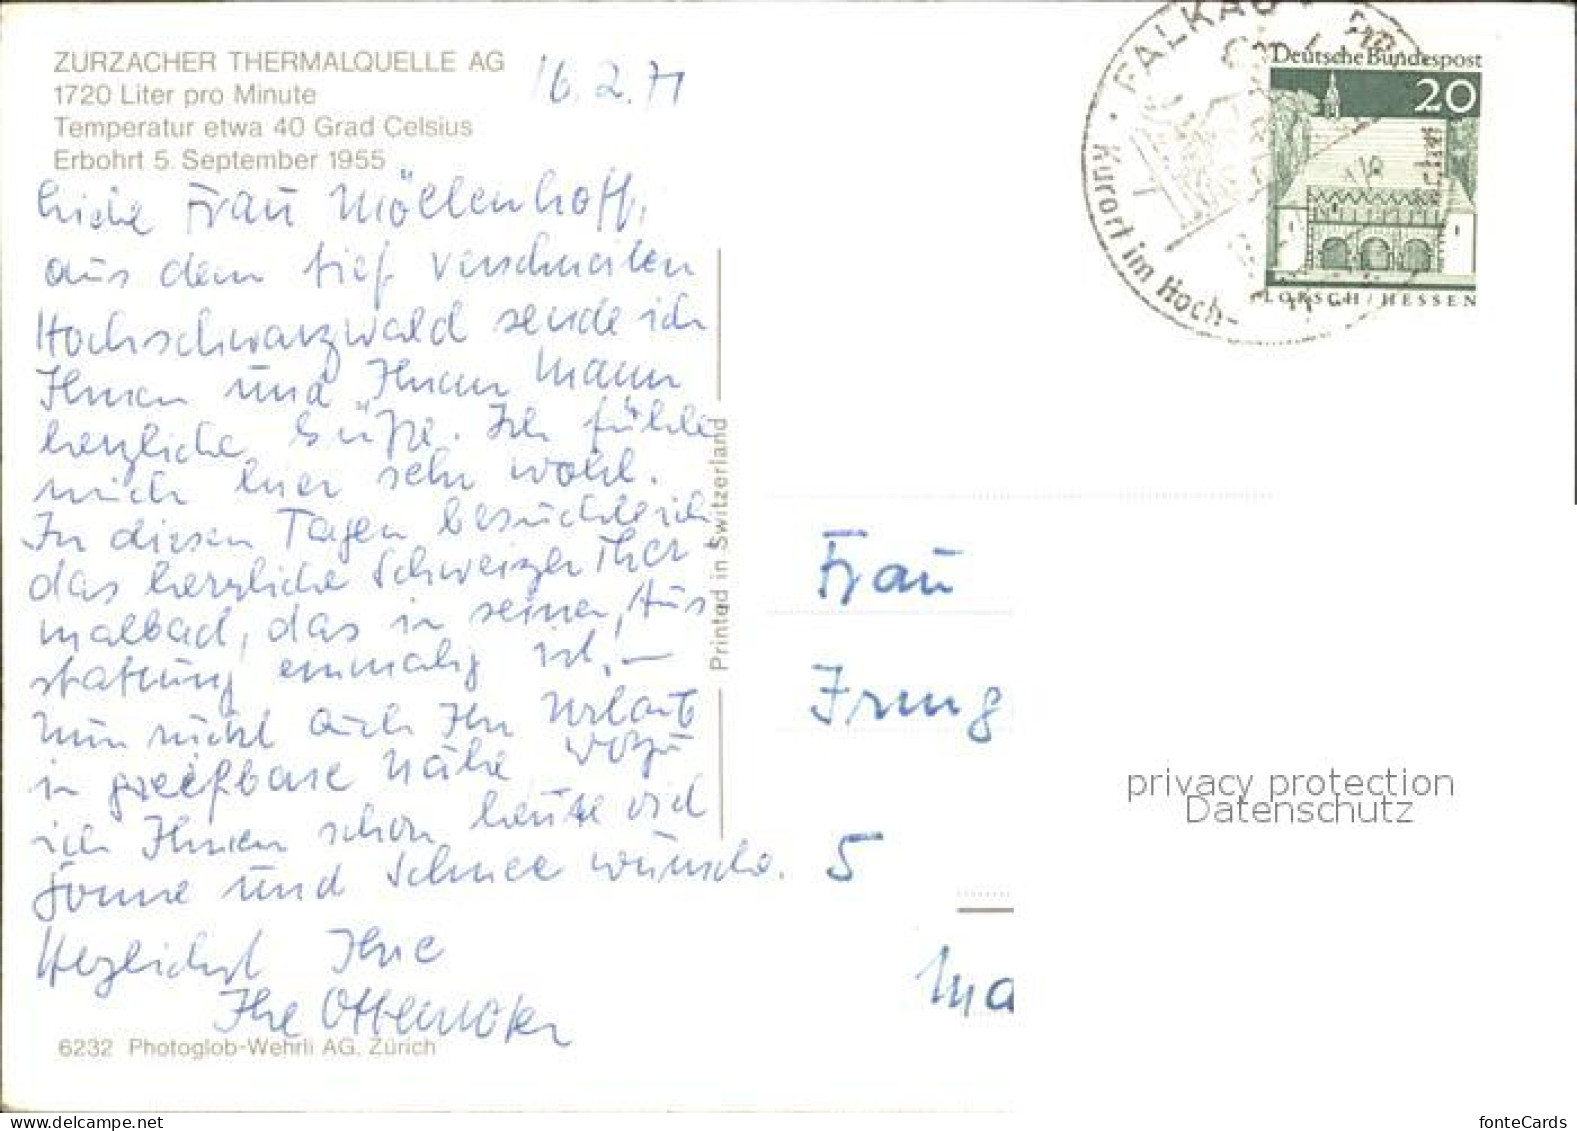 ZURZACHER THERMALQUELLE AG
1720 Liter pro Minute
Temperatur etwa 40 Grad Celsius
Erbohrt 5. September 1955
16.2.71
Liebe Frau Möllenhoff,
aus dem tief verschneiten
Hochschwarzwald sende ich
Ihnen und Ihrem Mann
herzliche Grüße. Ich fühle
mich hier sehr wohl.
In diesen Tagen besuchte ich
das herrliche Schweizer Ther
malbad, das in seiner Aus
stattung einmalig ist. –
Nun rückt auch Ihr Urlaub
in greifbare Nähe, wozu
ich Ihnen schon heute viel
Sonne und Schnee wünsche.
Herzlichst Ihre
Ihre
6232 Photoglob-Wehrli AG, Zürich
Printed in Switzerland
FALKAU
Kurort im Hoch-
Deutsche Bundespost
20
LORSCH/HESSEN
Frau
Irmg
5
Ma
privacy protection
Datenschutz
fonteCards